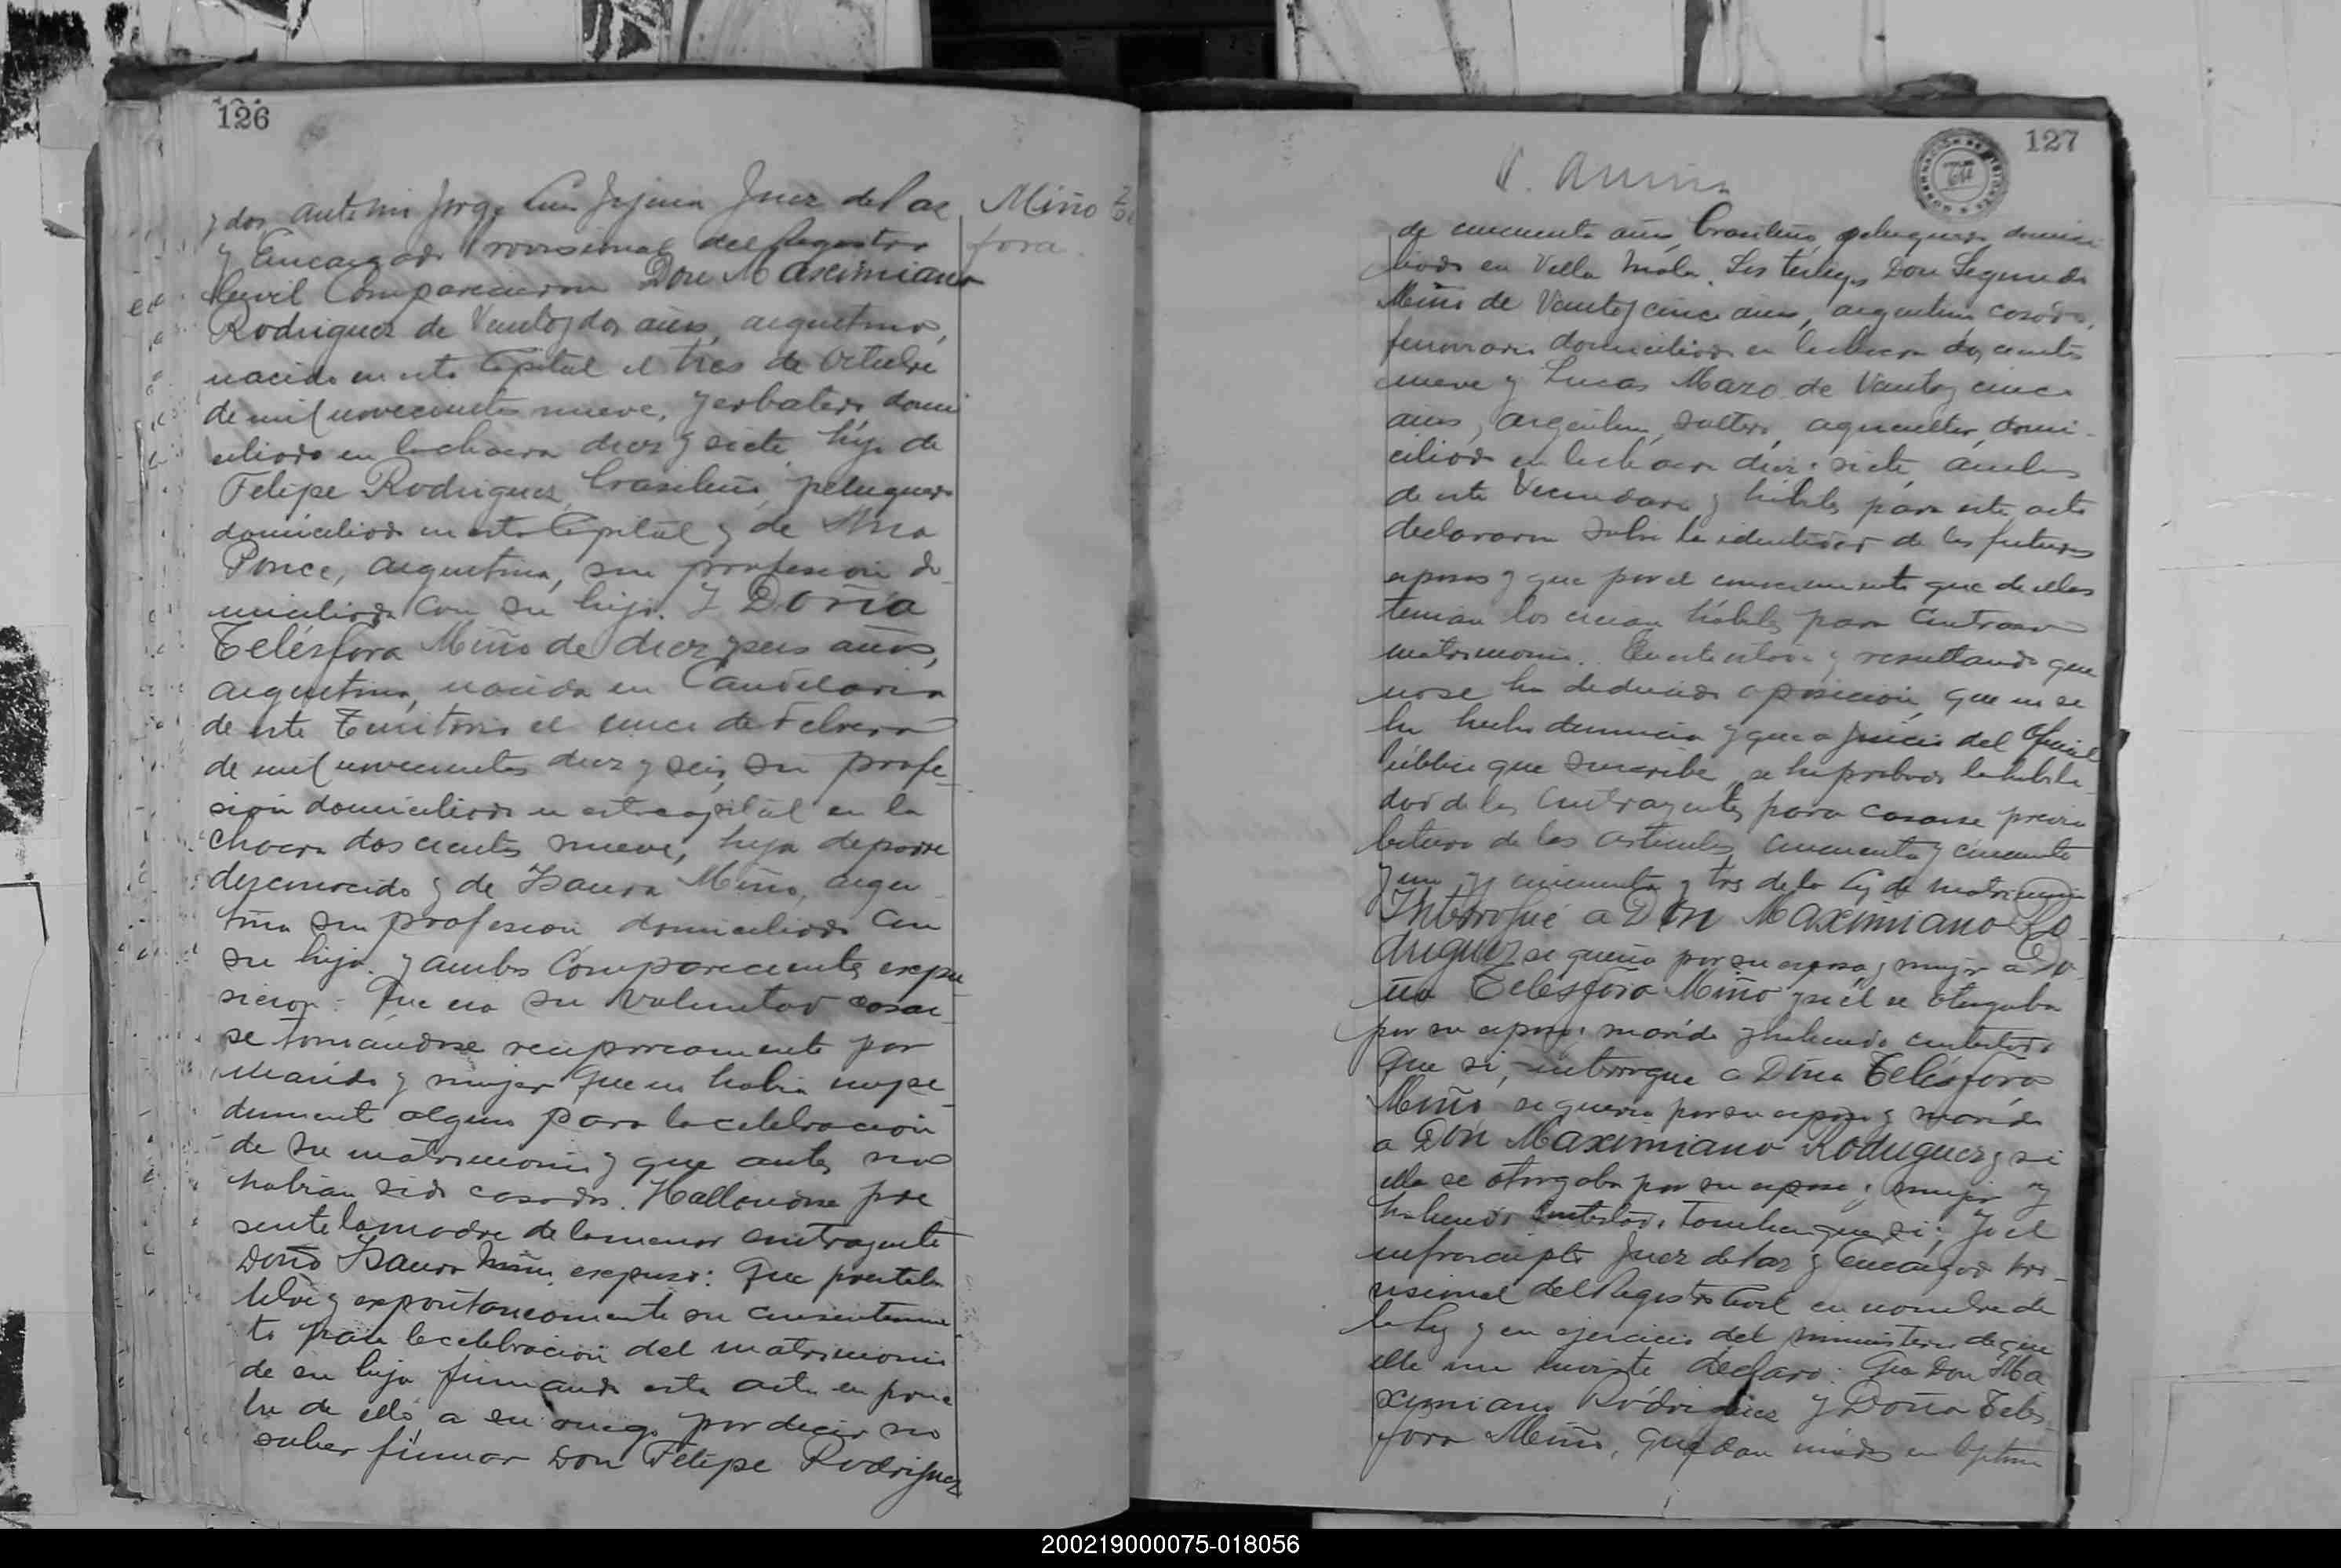 126
y dos ante mi Jorge Luis Juez de Paz
y Encargado Provisional del Registro
Civil Comparecieron Don Maximiano
Rodriguez de Veintey dos años, argentino,
nacido en esta Capital el tres de Octubre
de mil novecientos nueve, yerbatero domi
ciliado en la chacra diez y siete, hijo de
Felipe Rodriguez, brasileño, peluquero
domiciliado en esta Capital y de Ana
Ponce, argentina, sin profesion do
miciliada con su hijo. Y Doña
Telésfora Miño de diez y seis años,
argentina, nacida en Candelaria
de este Territorio el once de Febrero
de mil novecientos diez y seis, sin profe
sión domiciliada en esta capital en la
chacra dos cientos nueve, hija de padre
desconocido y de Isaura Miño, argen
tina sin profesion domiciliada con
su hija. y ambos Comparecientes expu
sieron: Que era su voluntad casar
se tomandose reciprocamente por
Marido y mujer que no habia impe
dimento alguno para la celebracion
de su matrimonio y que antes no
habian sido casados. Hallandose pre
sente la madre de la menor contrayente
Doña Isaura Miño, expuso: Que prestaba
libre y expontaneamente su consentimien
to para la celebracion del matrimonio
de su hija firmando esta acta en prue
ba de ello a su ruego por decir no
saber firmar Don Felipe Rodriguez
Miño Te
fora
127
de cincuenta años, brasileño, peluquero, domici
liado en Villa Mola. Los testigos Don Segundo
Miño de Veintey cinco años, argentino casado,
domiciliado en la chacra dos cientos
nueve y Lucas Mazo de Veintey cinco
años, argentino, soltero, agricultor, domi
ciliado en la chacra diez i siete, ambos
de este Vecindario y hábiles para este acto
declararon sobre la identidad de los futuros
esposos y que por el conocimiento que de ellos
tenian los creian hábiles para Contraer
matrimonio. En este estado y resultando que
no se ha deducido oposicion, que no se
ha hecho denuncia y que a juicio del Oficial
Público que suscribe, se ha probado la habili
dad de los Contrayentes para casarse previa
lectura de los articulos cincuenta y cincuenta
y un y cincuenta y tres de la Ley de Matrimonio
Interrogué a Don Maximiano Ro
driguez si queria por su esposa y mujer a Do
ña Telésfora Miño y si él se otorgaba
por su esposo i marido y habiendo contestado
que si, interrogue a Doña Telésfora
Miño si queria por su esposo y marido
a Don Maximiano Rodriguez y si
ella se otorgaba por su esposa i mujer y
habiendo Contestado tambien que si; Yo el
infrascripto Juez de Paz y Encargado Pro
visional del Registro Civil en nombre de
la Ley y en ejercicio del ministerio de que
ella me inviste, declaro: Que Don Ma
ximiano Rodriguez y Doña Teles
fora Miño, quedan unidos en legitimo
200219000075-018056